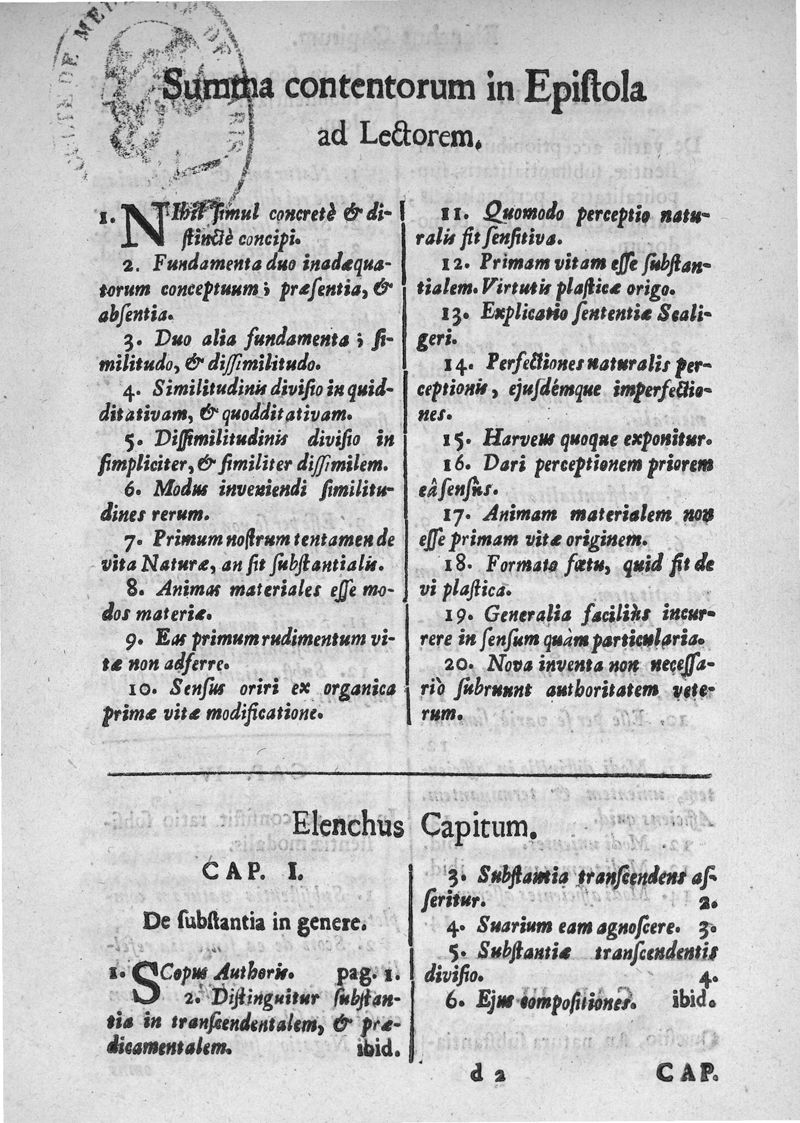 Summa contentorum in Epiſtola
ad Lectorem.
1. NIhil ſimul concretè & di-
ſtinctè concipi.
2. Fundamenta duo inadæqua-
torum conceptuum; præſentia, &
abſentia.
3. Duo alia fundamenta; ſi-
militudo, & diſſimilitudo.
4. Similitudinis diviſio in quid-
ditativam, & quodditativam.
5. Diſſimilitudinis diviſio in
ſimpliciter, & ſimiliter diſſimilem.
6. Modus inveniendi ſimilitu-
dines rerum.
7. Primum noſtrum tentamen de
vita Naturæ, an ſit ſubſtantialis.
8. Animas materiales eſſe mo-
dos materiæ.
9. Eas primum rudimentum vi-
tæ non adferre.
10. Senſus oriri ex organica
primæ vitæ modificatione.
11. Quomodo perceptio natu-
ralis fit ſenſitiva.
12. Primam vitam eſſe ſubſtan-
tialem. Virtutis plaſticæ origo.
13. Explicatio ſententiæ Scali-
geri.
14. Perfectiones naturalis per-
ceptionis, ejuſdémque imperfectio-
nes.
15. Harveus quoque exponitur.
16. Dari perceptionem priorem
eâ ſensûs.
17. Animam materialem non
eſſe primam vitæ originem.
18. Formato fœtu, quid fit de
vi plaſtica.
19. Generalia faciliùs incur-
rere in ſenſum quàm particularia.
20. Nova inventa non neceſſa-
riò ſubruunt authoritatem vete-
rum.
Elenchus Capitum.
CAP. I.
De ſubſtantia in genere.
1. SCopus Authoris. pag. 1.
2. Diſtinguitur ſubſtan-
tia in tranſcendentalem, & præ-
dicamentalem. ibid.
3. Subſtantia tranſcendens aſ-
ſeritur. 2.
4. Suarium eam agnoſcere. 3.
5. Subſtantiæ tranſcendentis
diviſio. 4.
6. Ejus compoſitiones. ibid.
d 2 CAP.